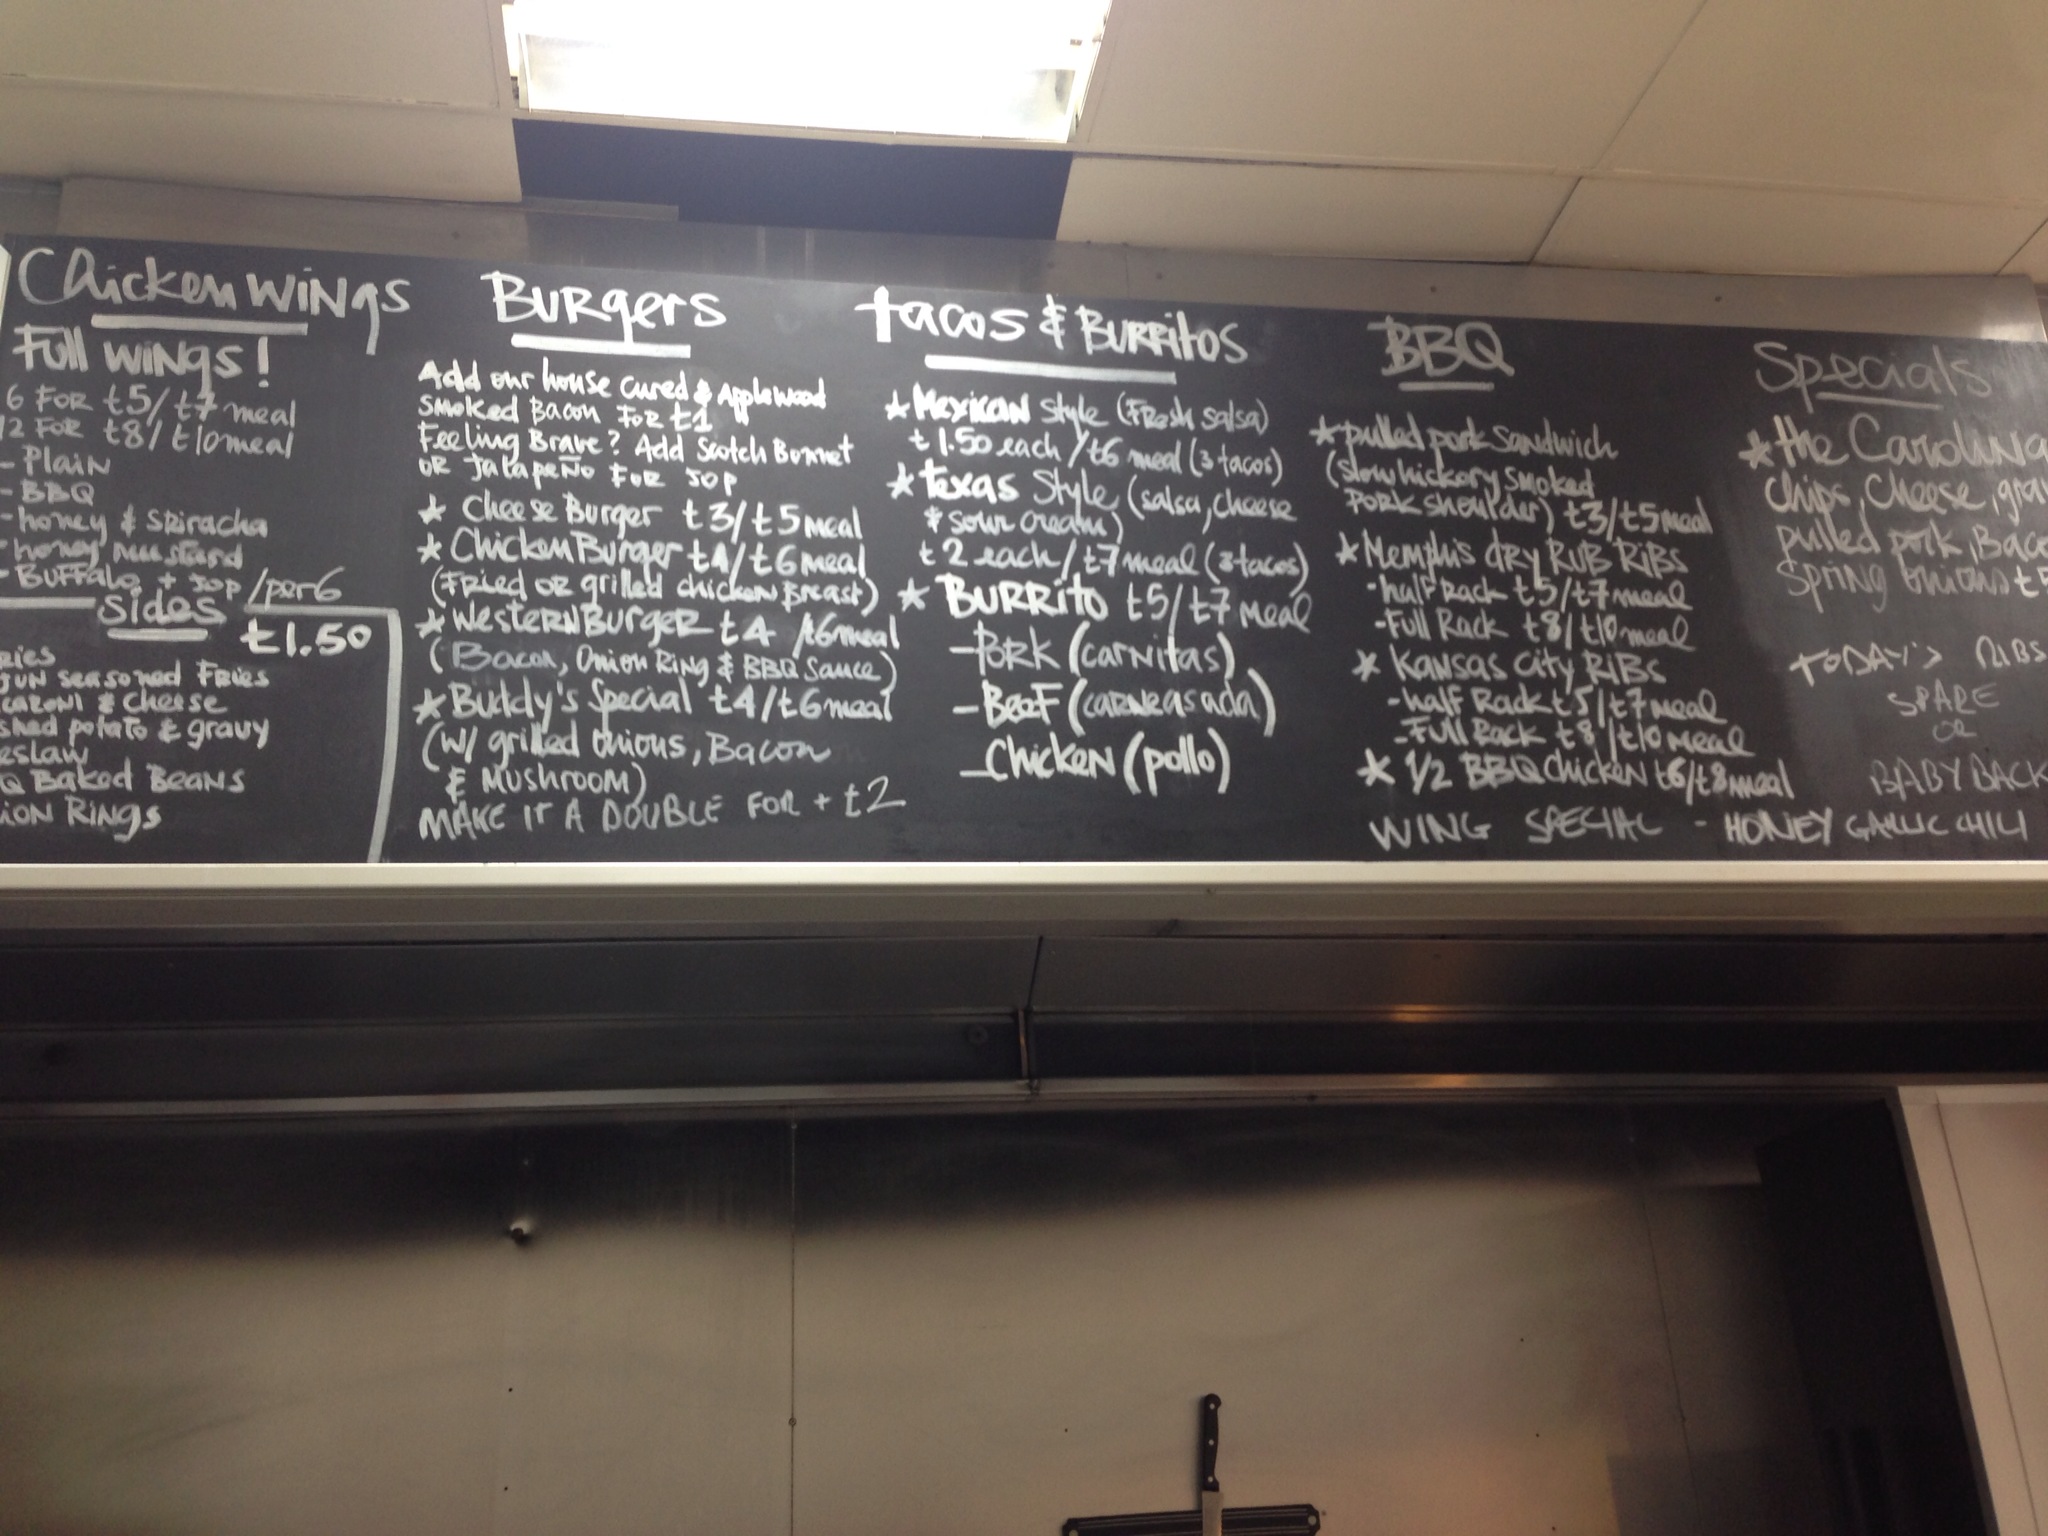 Chicken Wings
Full Wings!
6 FOR £5/£7 meal
12 FOR £8/£10 meal
- Plain
- BBQ
- honey & Sriracha
- honey mustard
- Buffalo + 50p /per 6
Sides
£1.50
ries
jun seasoned Fries
caroni & cheese
shed potato & gravy
eslaw
Q Baked Beans
ion Rings
Burgers
Add our house cured & Applewood
smoked Bacon FOR £1
Feeling Brave? Add Scotch Bonnet
OR Jalapeño FOR 50p
★ Cheese Burger £3/£5 meal
★ Chicken Burger £4/£6 meal
(Fried OR grilled chicken Breast)
★ Western Burger £4 /£6 meal
(Bacon, Onion Ring & BBQ Sauce)
★ Buddy's Special £4/£6 meal
(w/ grilled onions, Bacon
& Mushroom)
MAKE IT A DOUBLE FOR + £2
tacos & Burritos
★ Mexican Style (Fresh salsa)
£1.50 each/£6 meal (3 tacos)
★ Texas Style (salsa, cheese
& sour cream)
£2 each/£7 meal (3 tacos)
★ Burrito £5/£7 Meal
- Pork (carnitas)
- Beef (carne asada)
- Chicken (pollo)
BBQ
★ pulled pork sandwich
(slow hickory smoked
pork shoulder) £3/£5 meal
★ Memphis dry RUB RIBS
- half Rack £5/£7 meal
- Full Rack £8/£10 meal
★ Kansas City RIBS
- half Rack £5/£7 meal
- Full Rack £8/£10 meal
★ 1/2 BBQ Chicken £6/£8 meal
Specials
★ the Carolina
chips, cheese, grav
pulled pork, Baco
Spring onions £5
TODAY'S RIBS
SPARE
OR
BABY BACK
WING SPECIAL - HONEY GARLIC CHILI